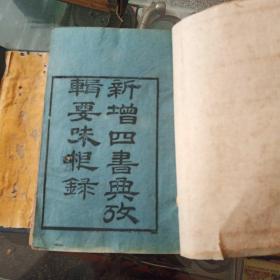 新增四書典攷
輯要味根錄